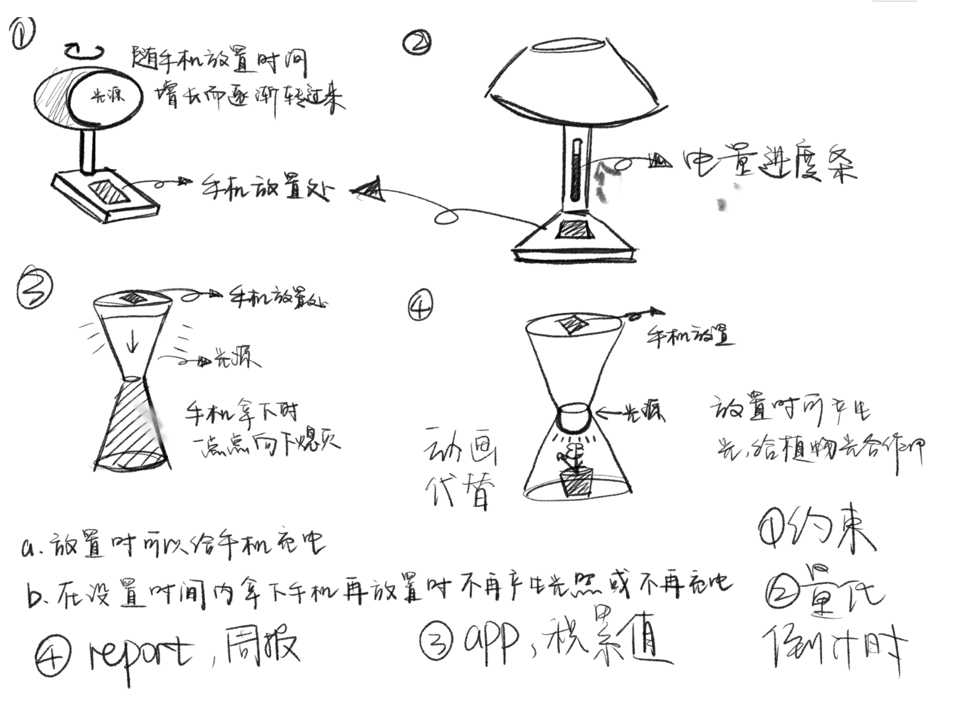 ①
随手机放置时间
增长而逐渐转过来
光源
手机放置处
②
电量进度条
③
手机放置处
光源
手机拿下时
一点点向下熄灭
④
手机放置
光源
放置时所产生
光,给植物光合作用
动画
代替
a.放置时可以给手机充电
b.在设置时间内拿下手机再放置时不再产生光照或不再充电
①约束
②量化
倒计时
③app,积累值
④report,周报